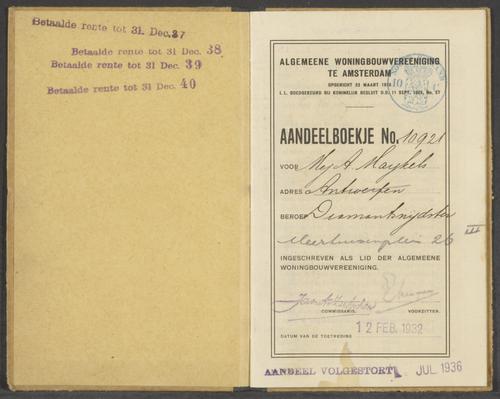 Betaalde rente tot 31 Dec. 37
Betaalde rente tot 31 Dec. 38
Betaalde rente tot 31 Dec. 39
Betaalde rente tot 31 Dec. 40
ALGEMEENE WONINGBOUWVEREENIGING
TE AMSTERDAM
OPGERICHT 23 MAART
L.L. GOEDGEKEURD BIJ KONINKLIJK BESLUIT D.D. 11 SEPT. No. 57
AANDEELBOEKJE No. 10921
VOOR Mej. A. Maykels
ADRES Antwerpen
BEROEP Diamantsnijdster
26
INGESCHREVEN ALS LID DER ALGEMEENE
WONINGBOUWVEREENIGING.
COMMISSARIS. VOORZITTER.
12 FEB. 1932
DATUM VAN DE TOETREDING
AANDEEL VOLGESTORT JUL 1936